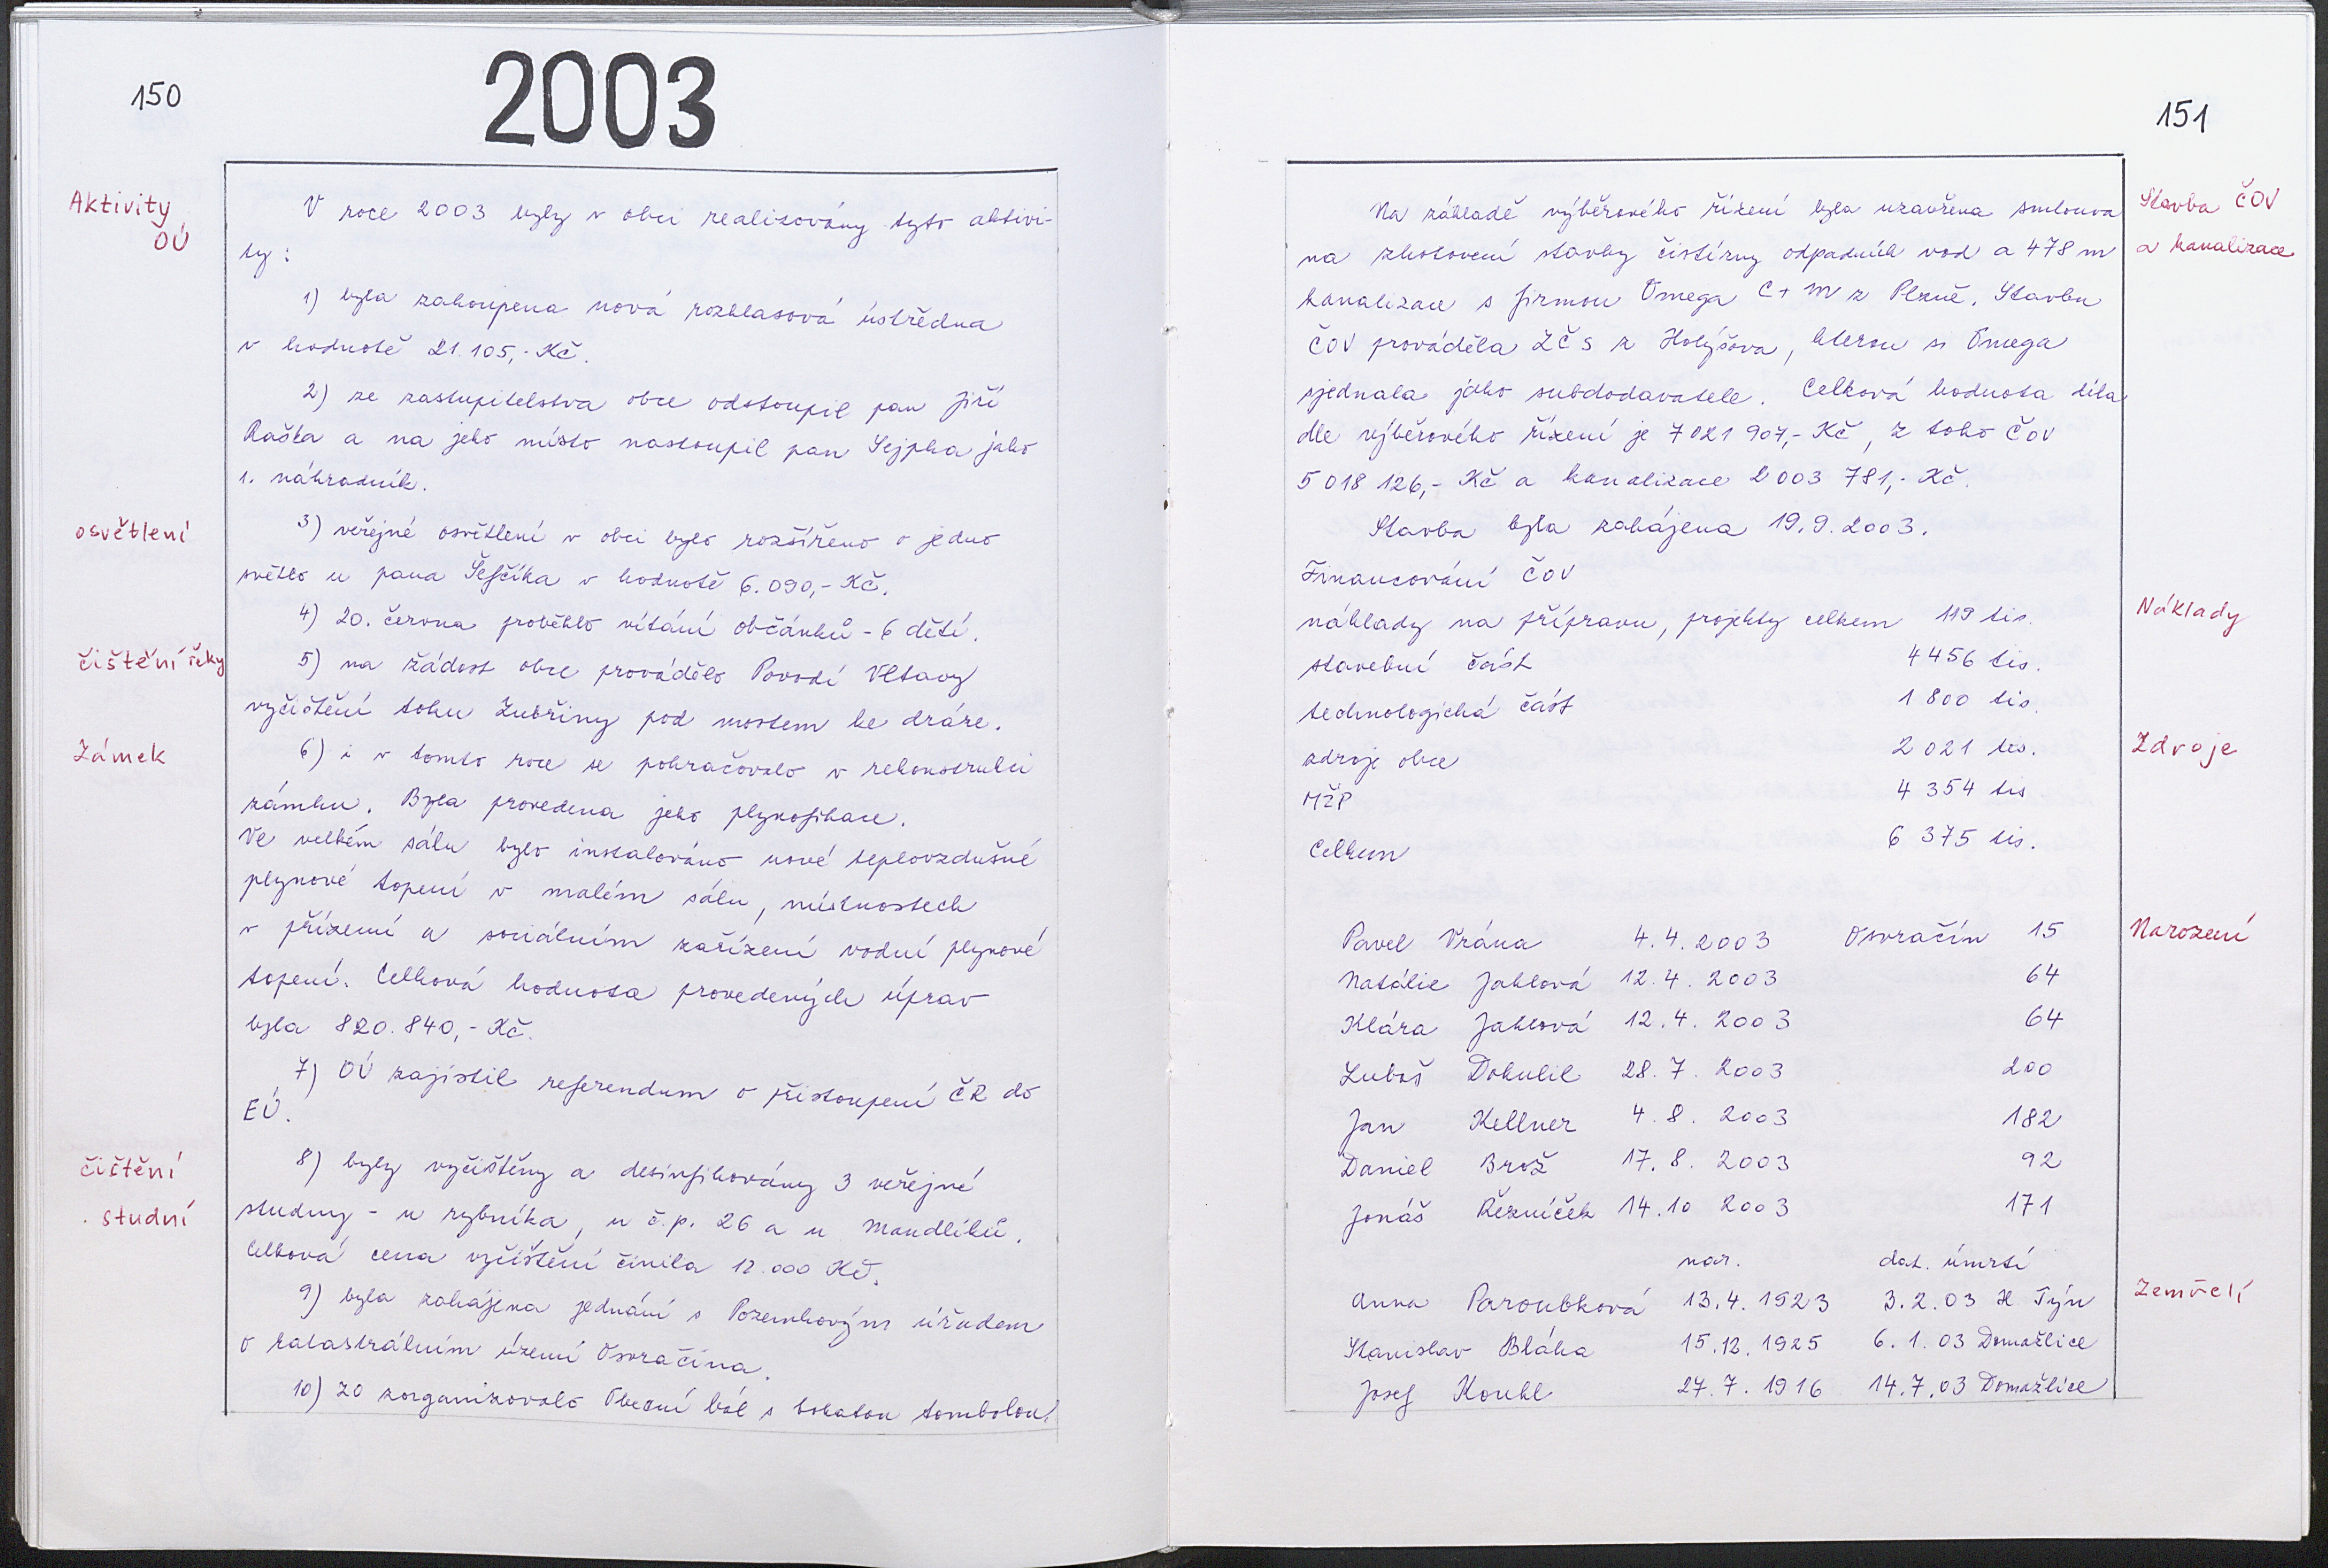 150
2003
Aktivity
OÚ
V roce 2003 byly v obci realizovány tyto aktivi-
ty:
1) byla zakoupena nová rozhlasová ústředna
v hodnotě 21.105,- Kč.
2) ze zastupitelstva obce odstoupil pan Jiří
Raška a na jeho místo nastoupil pan Sejpka jako
1. náhradník.
osvětlení
3) veřejné osvětlení v obci bylo rozšířeno o jedno
světlo u pana Šefčíka v hodnotě 6.090,- Kč.
4) 20. června proběhlo vítání občánků - 6 dětí.
čištění řeky
5) na žádost obce provádělo Povodí Vltavy
vyčištění toku Zubřiny pod mostem ke dráze.
Zámek
6) i v tomto roce se pokračovalo v rekonstrukci
zámku. Byla provedena jeho plynofikace.
Ve velkém sálu bylo instalováno nové teplovzdušné
plynové topení v malém sálu, místnostech
v přízemí a sociálním zařízení vodní plynové
topení. Celková hodnota provedených úprav
byla 820.840,- Kč.
7) OÚ zajistil referendum o přistoupení ČR do
EÚ.
čištění
studní
8) byly vyčištěny a desinfikovány 3 veřejné
studny - u rybníka, u č.p. 26 a u Mandlíků.
Celková cena vyčištění činila 12.000 Kč.
9) byla zahájena jednání s Pozemkovým úřadem
o katastrálním území Osvračína.
10) ZO zorganizovalo Obecní bál s bohatou tombolou.
151
Na základě výběrového řízení byla uzavřena smlouva
na zhotovení stavby čistírny odpadních vod a 478 m
kanalizace s firmou Omega C+M z Plzně. Stavbu
ČOV prováděla ZČS z Holýšova, kterou si Omega
sjednala jako subdodavatele. Celková hodnota díla
dle výběrového řízení je 7 021 907,- Kč, z toho ČOV
5 018 126,- Kč a kanalizace 2 003 781,- Kč.
Stavba byla zahájena 19.9.2003.
Stavba ČOV
a kanalizace
Financování ČOV
náklady na přípravu, projekty celkem 119 tis.
stavební část 4456 tis.
technologická část 1 800 tis.
Náklady
zdroje obce 2 021 tis.
MŽP 4 354 tis
Celkem 6 375 tis.
Zdroje
Pavel Vrána 4.4.2003 Osvračín 15
Natálie Jahlová 12.4.2003 64
Klára Jahlová 12.4.2003 64
Luboš Dokulil 28.7.2003 200
Jan Kellner 4.8.2003 182
Daniel Brož 17.8.2003 92
Jonáš Řezníček 14.10 2003 171
Narození
nar. dat. úmrtí
Anna Paroubková 13.4.1923 3.2.03 H. Týn
Stanislav Bláha 15.12.1925 6.1.03 Domažlice
Josef Kouhl 27.7.1916 14.7.03 Domažlice
Zemřelí